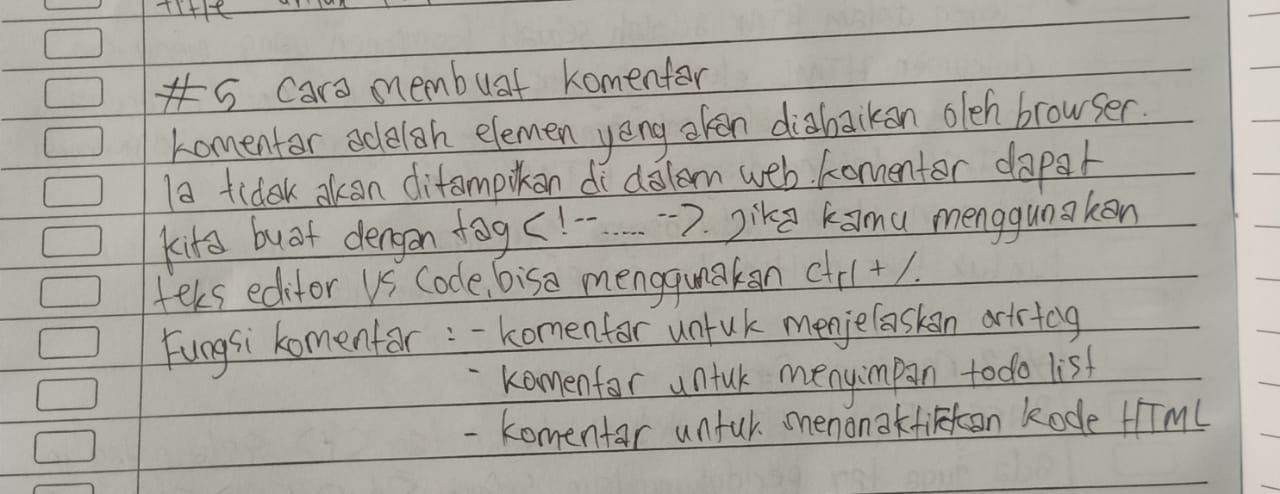 title untuk
#5 Cara membuat komentar
komentar adalah elemen yang akan diabaikan oleh browser.
Ia tidak akan ditampikan di dalam web. komentar dapat
kita buat dengan tag <!-- ..... -->. jika kamu menggunakan
teks editor VS Code, bisa menggunakan ctrl + /.
Fungsi komentar : - komentar untuk menjelaskan arti tag
- komentar untuk menyimpan todo list
- komentar untuk menonaktifkan kode HTML